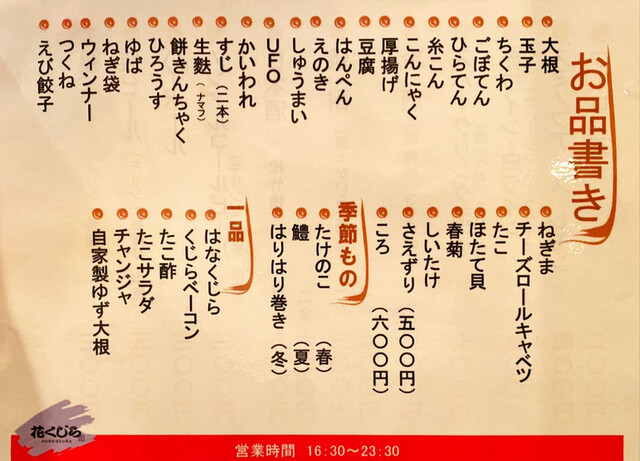 お品書き
大根
玉子
ちくわ
ごぼてん
ひらてん
糸こん
こんにゃく
厚揚げ
豆腐
はんぺん
えのき
しゅうまい
UFO
かいわれ
すじ（二本）
生麩（ナマフ）
餅きんちゃく
ひろうす
ゆば
ねぎ袋
ウィンナー
つくね
えび餃子
ねぎま
チーズロールキャベツ
たこ
ほたて貝
春菊
しいたけ
さえずり（五〇〇円）
ころ（六〇〇円）
季節もの
たけのこ（春）
鱧（夏）
はりはり巻き（冬）
一品
はなくじら
くじらベーコン
たこ酢
たこサラダ
チャンジャ
自家製ゆず大根
花くじら
HANAKUJIRA
営業時間 16:30～23:30